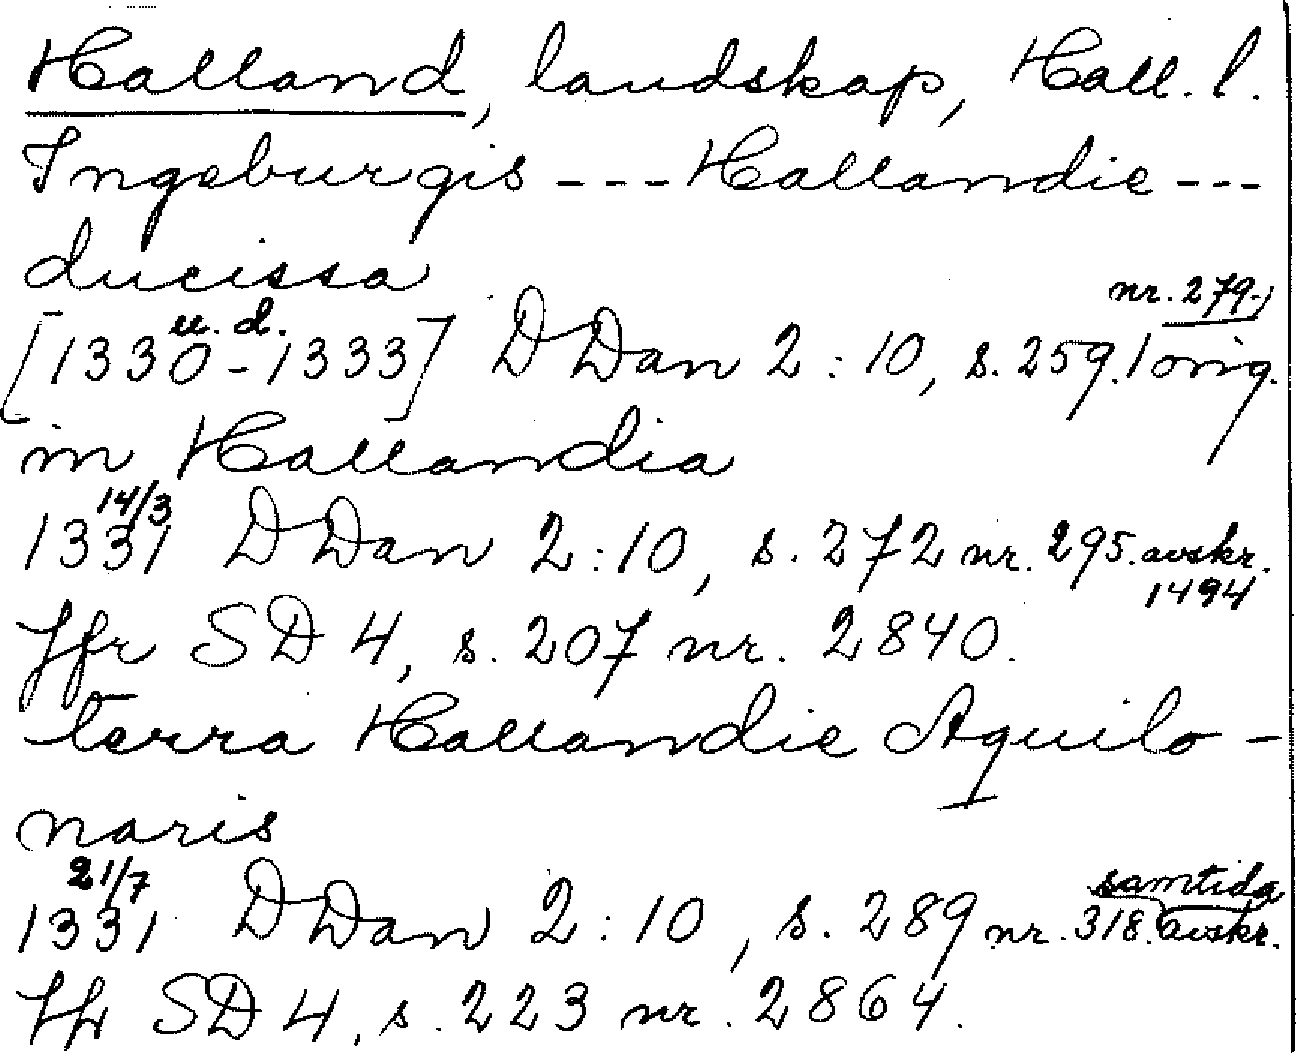 Halland, landskap, Hall. l.
Ingeburgis --- Hallandie ---
ducissa
[1330 u.d. - 1333] DDan 2:10, s. 259. nr. 279, orig.
in Hallandia
1331 14/3 DDan 2:10, s. 272 nr. 295. avskr. 1494
Jfr SD 4, s. 207 nr. 2840.
terra Hallandie Aquilo-
naris
1331 21/7 DDan 2:10, s. 289 nr. 318. samtida avskr.
Jfr SD 4, s. 223 nr. 2864.